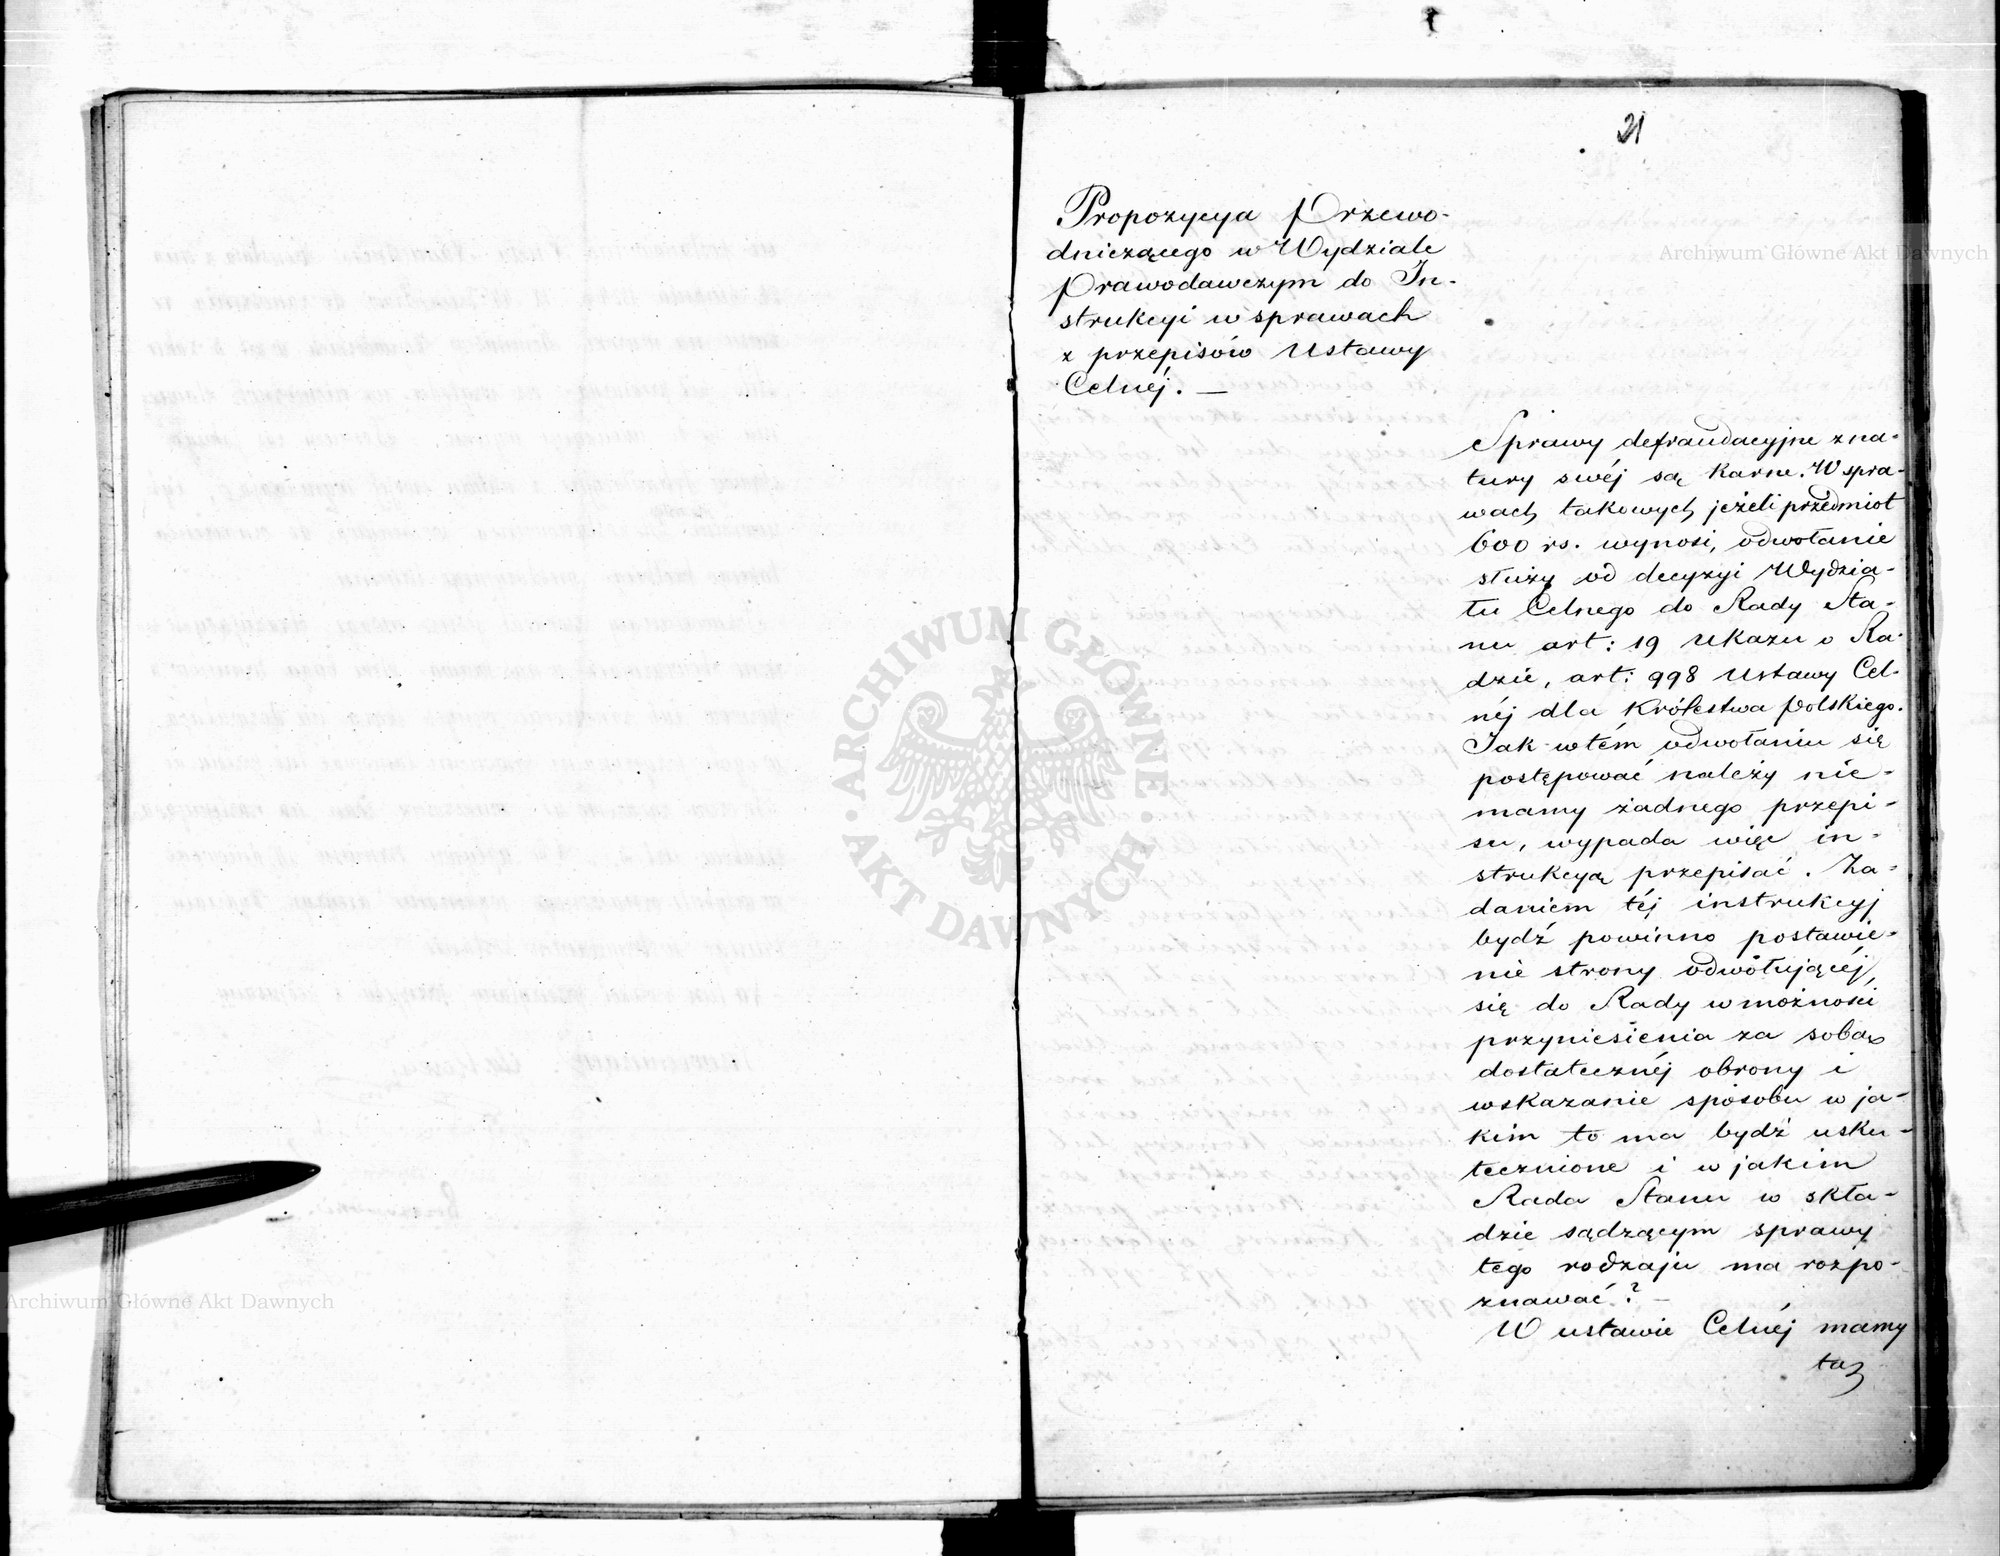 21
Propozycya Przewo-
dniczącego w Wydziale
Prawodawczym do In-
strukcyi w sprawach
z przepisów Ustawy
Celnéj. —
Sprawy defraudacyjne z na-
tury swéj są karne. W spra-
wach takowych jeżeli przedmiot
600 rs. wynosi, odwołanie
służy od decyzyi Wydzia-
łu Celnego do Rady Sta-
nu art: 19 Ukazu o Ra-
dzie, art: 998 Ustawy Cel-
néj dla Królestwa Polskiego.
Jak w tém odwołaniu się
postępować należy nie-
mamy żadnego przepi-
su, wypada więc in-
strukcyą przepisać. Za-
daniem téj instrukcyj
bydź powinno postawie-
nie strony odwołującéj
się do Rady w możności
przyniesienia za sobą
dostatecznéj obrony i
wskazanie sposobu w ja-
kim to ma bydź usku-
tecznione i w jakim
Rada Stanu w skła-
dzie sądzącym sprawy
tego rodzaju ma rozpo-
znawać? —
W ustawie Celnéj mamy
ARCHIWUM GŁÓWNE · AKT DAWNYCH ·
Archiwum Główne Akt Dawnych
Archiwum Główne Akt Dawnych